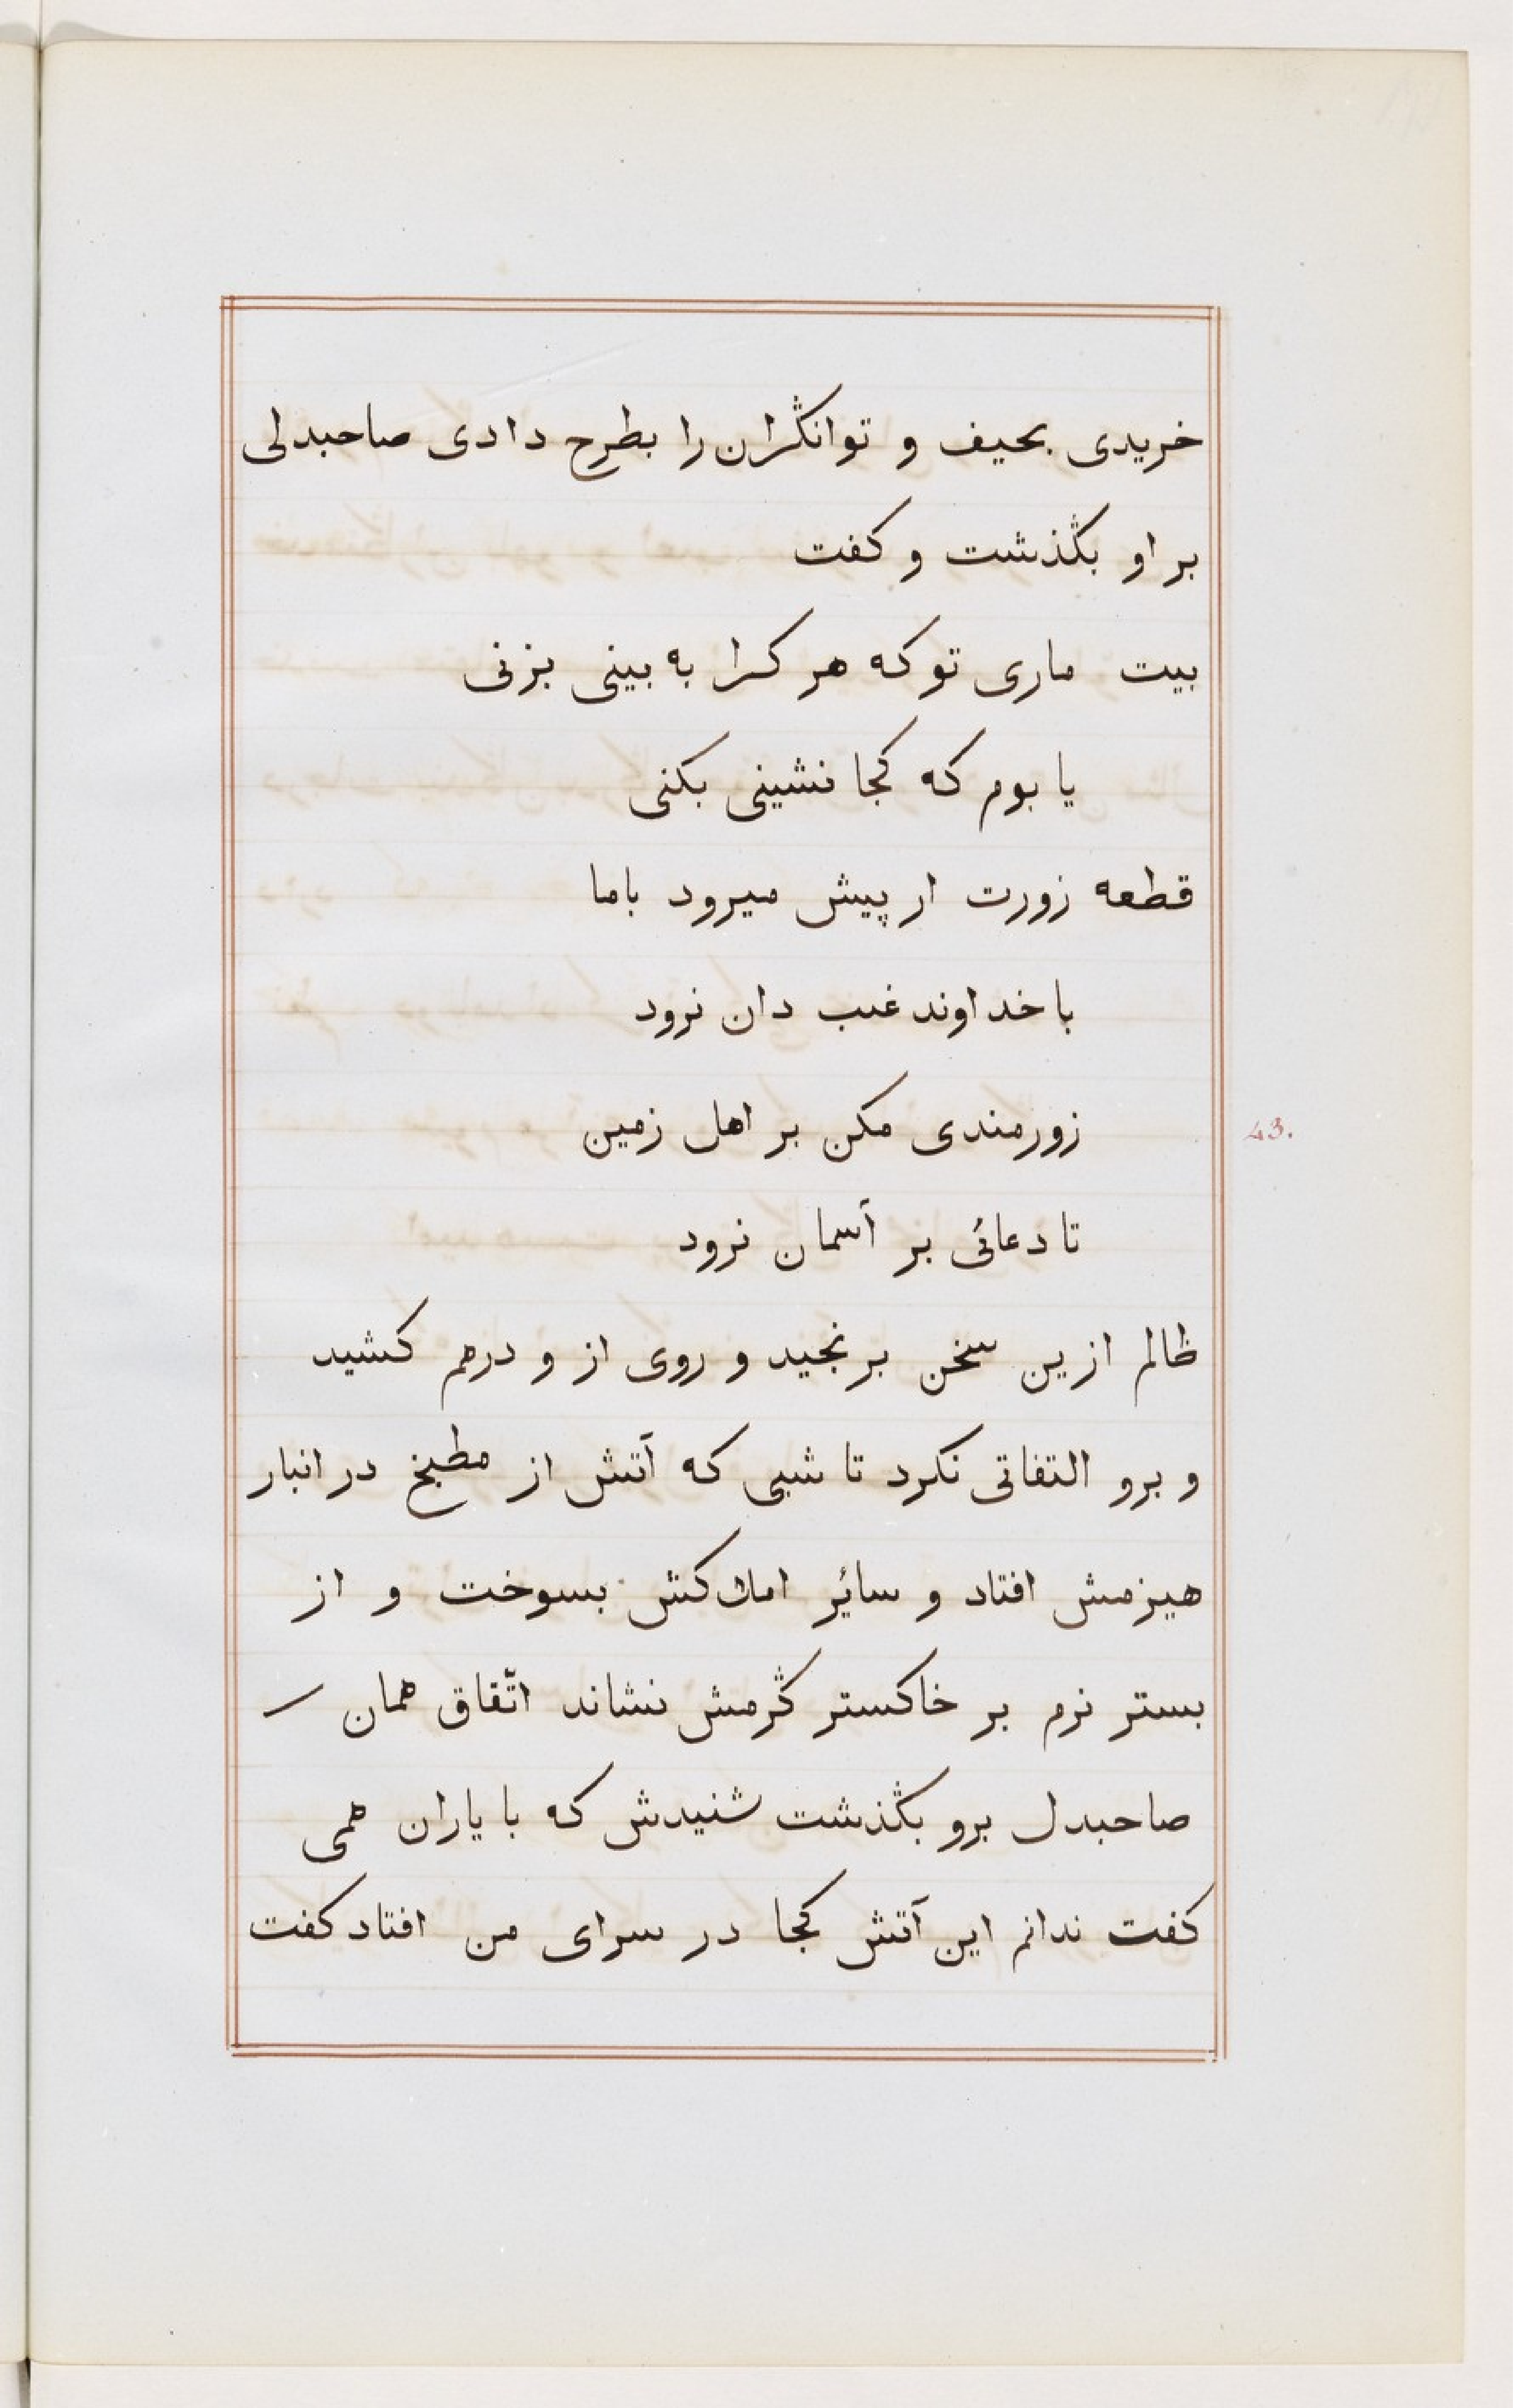 خریدی بحیف و توانگران را بطرح دادی صاحبدلی
بر او بگذشت و کفت
بیت ماری تو که هر کرا به بینی بزنی
یا بوم که کجا نشینی بکنی
قطعه زورت ار پیش میرود باما
با خداوند غیب دان نرود
زورمندی مکن بر اهل زمین
43.
تا دعائی بر آسمان نرود
ظالم ازین سخن برنجید و روی از و درهم کشید
و برو التفاتی نکرد تا شبی که آتش از مطبخ در انبار
هیزمش افتاد و سائر املاکش بسوخت و از
بستر نرم بر خاکستر گرمش نشاند اتّفاق همان
صاحبدل برو بگذشت شنیدش که با یاران همی
کفت ندانم این آتش کجا در سرای من افتاد کفت